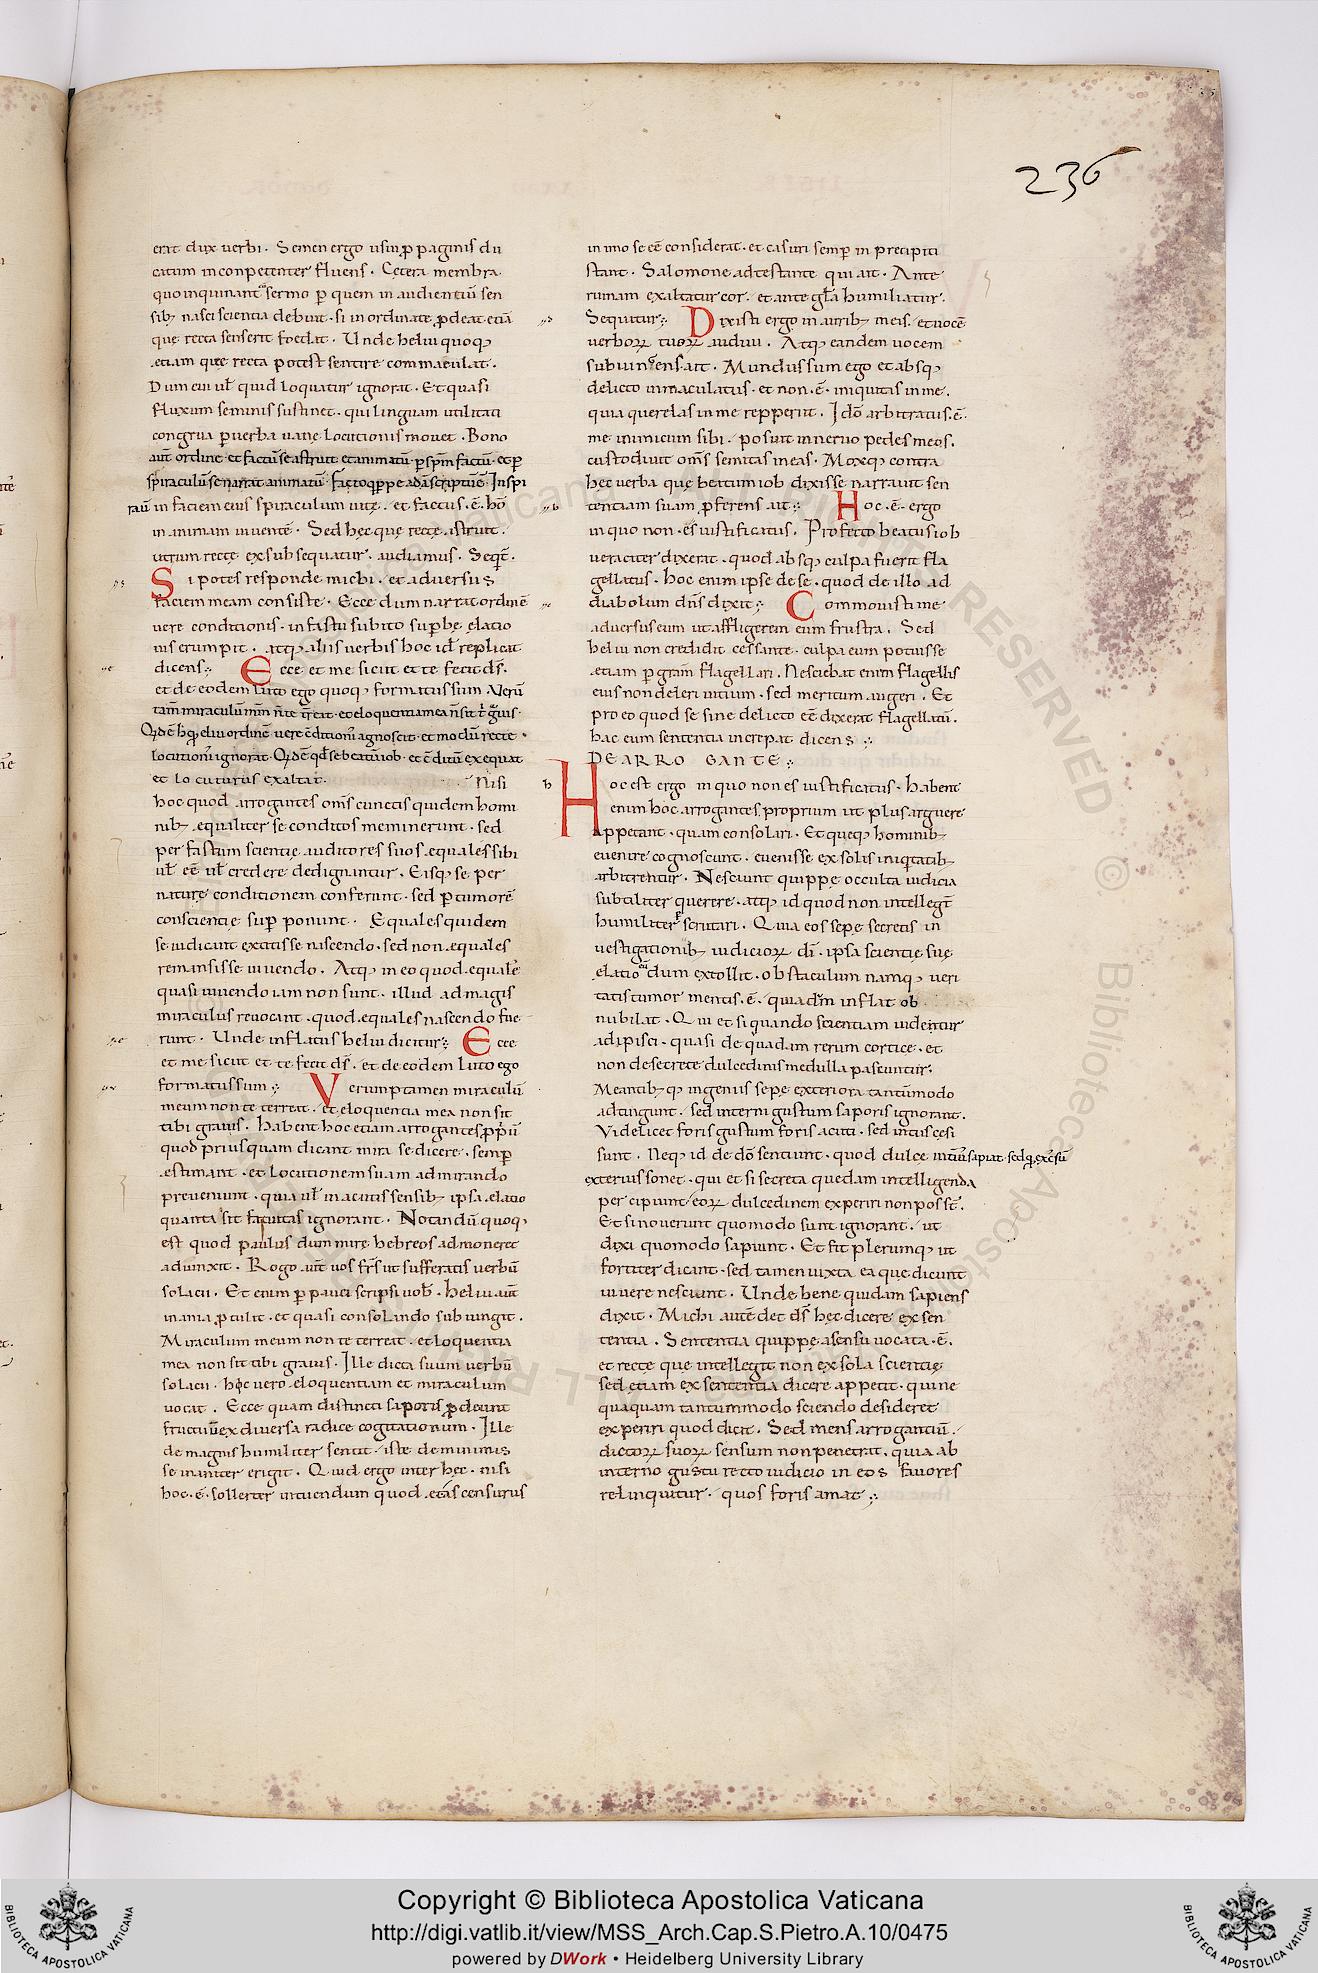 236
erat dux uerbi. Semen ergo usui p̱paginis di
catum inconpetenter fluens. Cetera membra
quo inquinant̃ sermo ꝑ quem in audientiũ sen
sibꝫ nasci sciencia debuit. si inordinate ꝓdeat etiã
quę recta senserit foedat. Unde heliu quoqꝫ
etiam quę recta potest sentire commaculat.
Dum cui uł quid loquatur ignorat. Et quasi
fluxum seminis sustinet. qui linguam utilitati
congrua ꝑ uerba uanę locutionis mouet. Bono
aut̃ ordine et factũ se astruit et animatũ. ꝑ sp̃m factũ. et ꝑ
spiraculũ se narrat animatũ. Facto q̃ppe adã scriptũ ẽ. Inspi
rauit in faciem eius spiraculum uitę. et factus .ẽ. hõ
in animam uiuentẽ. Sed hęc quę recte astruit.
utrum recte exsubsequatur. audiamus. Seqt̃.
Si potes responde michi. et aduersus
faciem meam consiste. Ecce dum narrat ordinẽ
uere conditionis. in fastu subito suꝑbę elatio
uis erumpit. atqꝫ aliis uerbis hoc idẽ replicat
dicens; Ecce et me sicut et te fecit ds̃.
et de eodem luto ego quoqꝫ formatus sum. Uerũ
tam̃ miraculũ mm̃ ñ te t̃reat. et eloquentia mea ñ sit t̃ g̃uis.
Qd̃ ẽ hq̃ eliu ordinẽ uere c̃ditionis agnoscit. et modũ recte
locutionis ignorat. Qd̃ ẽ qd̃ se beatũ iob. et c̃ditũ exequat
et locuturus exaltat. Nisi
hoc quod arrogantes om̃s cunctis quidem homi
nibꝫ equaliter se conditos meminerunt. sed
per fastum scientię auditores suos equales sibi
uł eẽ uł credere dedignantur. Eisqꝫ se per
naturę conditionem conferunt. sed ꝑ tumorẽ
conscientię suꝑponunt. Equales quidem
se iudicant extitisse nascendo. sed non equales
remansisse uiuendo. Atqꝫ in eo quod equale
quasi uiuendo iam non sunt. illud ad magis
miraculus reuocant. quod equales nascendo fue
runt. Unde inflatus heliu dicitur; Ecce
et me sicut et te fecit ds̃. et de eodem luto ego
formatus sum; Verumptamen miraculũ
meum non te terreat. et eloquencia mea non sit
tibi grauis. Habent hoc etiam arrogantes ꝓp̃ũ
quod priusquam dicant mira se dicere. semꝑ
estimant. et locutionem suam admirando
preueniunt. quia uł in acutis sensibꝫ ipsa elatio
quanta sit fatuitas ignorant. Notandũ quoqꝫ
est quod paulus dum mire hebreos admoneret
adiunxit. Rogo aut̃ uos fr̃s ut sufferatis uerbũ
solacii. Et enim ꝑ pauci scripsi uob̃. Heliu aut̃
inania ꝓtulit. et quasi consolando subiungit.
Miraculum meum non te terreat. et loquentia
mea non sit tibi grauis. Ille dicta suum uerbũ
solacii. hic uero eloquentiam et miraculum
uocat. Ecce quam distincti saporis ꝓdeunt
fructus ex diuersa radice cogitationum. Ille
de magnis humiliter sentit. iste de minimis
se inaniter erigit. Quid ergo inter hęc. nisi
hoc .ẽ. sollerter intuendum quod etãs censurus
in imo se eẽ considerat. et casuri semꝑ in precipiti
stant. Salomone adtestante qui ait. Ante
ruinam exaltatur cor. et ante gl̃a humiliatur.
Sequitur; Dixisti ergo in auribꝫ meis. et uocẽ
uerboꝝ tuoꝝ audiui. Atqꝫ eandem uocem
subiungens ait. Mundus sum ego et absqꝫ
delicto inmaculatus. et non .ẽ. iniquitas in me.
quia querelas in me repperit. Idõ arbitratus .ẽ.
me inimicum sibi. posuit in neruo pedes meos.
custodiuit om̃s semitas meas. Moxqꝫ contra
hęc uerba que beatum iob dixisse narrauit sen
tentiam suam ꝓferens ait; Hoc .ẽ. ergo
in quo non es iustificatus. Profecto beatus iob
ueraciter dixerat. quod absqꝫ culpa fuerit fla
gellatus. Hoc enim ipse de se. quod de illo ad
diabolum dñs dixit; Commouisti me
aduersus eum ut affligerem eum frustra. Sed
heliu non credidit cessante culpa eum potuisse
etiam ꝑ gram̃ flagellari. Nesciebat enim flagellis
eius non deleri uitium. sed meritum augeri. Et
pro eo quod se sine delicto eẽ dixerat flagellatũ.
hac eum sententia increpat dicens;
DE ARROGANTE;
Hoc est ergo in quo non es iustificatus. Habent
enim hoc arrogantes proprium ut plus arguere
appetant. quam consolari. Et queqꝫ hominibꝫ
euenire cognoscunt. euenisse ex solis iniquitatibꝫ
arbitrentur. Nesciunt quippe occulta iudicia
subtiliter querere. atqꝫ id quod non intellegt̃
humiliter ꝑscrutari. Quia eos sepe secretis in
uestigationibꝫ iudicioꝝ dĩ. ipsa scientię suę
elatio eũ dum extollit. obstaculum namqꝫ ueri
tatis tumor mentis .ẽ. quia dum inflat ob
nubilat. Qui et si quando scientiam uidentur
adipisci. quasi de quadam rerum cortice. et
non de secrete dulcedinis medulla pascuntur;
Meantibꝫqꝫ ingeniis sepe exteriora tantummodo
adtingunt. sed interni gustum saporis ignorant.
Videlicet foris gustum foris acuti. sed intus ceci
sunt. Neqꝫ id de dõ sentiunt. quod dulce intius sapiat. sed q̃ excẽsũ
exterius sonet. qui et si secreta quedam intelligenda
percipiunt. eoꝝ dulcedinem experiri non posst̃.
Et si nouerunt quomodo sunt ignorant. ut
dixi quomodo sapiunt. Et fit plerumqꝫ ut
fortiter dicant. sed tamen iuxta ea que dicunt
uiuere nesciunt. Unde bene quidam sapiens
dixit. Michi autẽ det ds̃ hęc dicere ex sen
tentia. Sententia quippe a sensu uocata .ẽ.
et recte que intellegit non ex sola scientię
sed etiam ex sententia dicere appetit. qui ne
quaquam tantummodo sciendo desideret
experiri quod dicit. Sed mens arrogantiũ.
dictoꝝ suoꝝ sensum non penetrat. quia ab
interno gustu recto iudicio in eos fauores
relinquitur. quos foris amat;
Copyright © Biblioteca Apostolica Vaticana
http://digi.vatlib.it/view/MSS_Arch.Cap.S.Pietro.A.10/0475
powered by DWork • Heidelberg University Library